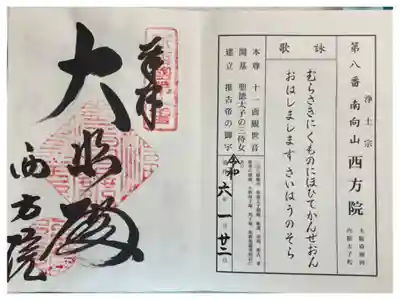 第八番 浄土宗 南向山 西方院
大阪府南河内郡太子町
詠歌
むらさきにくものにほひてかんぜおん
おはしましますさいはうのそら
本尊 十一面観世音
開基 聖徳太子の三侍女
建立 推古帝の御宇
令和六年一月廿二日
奉拝
大悲殿
西方院